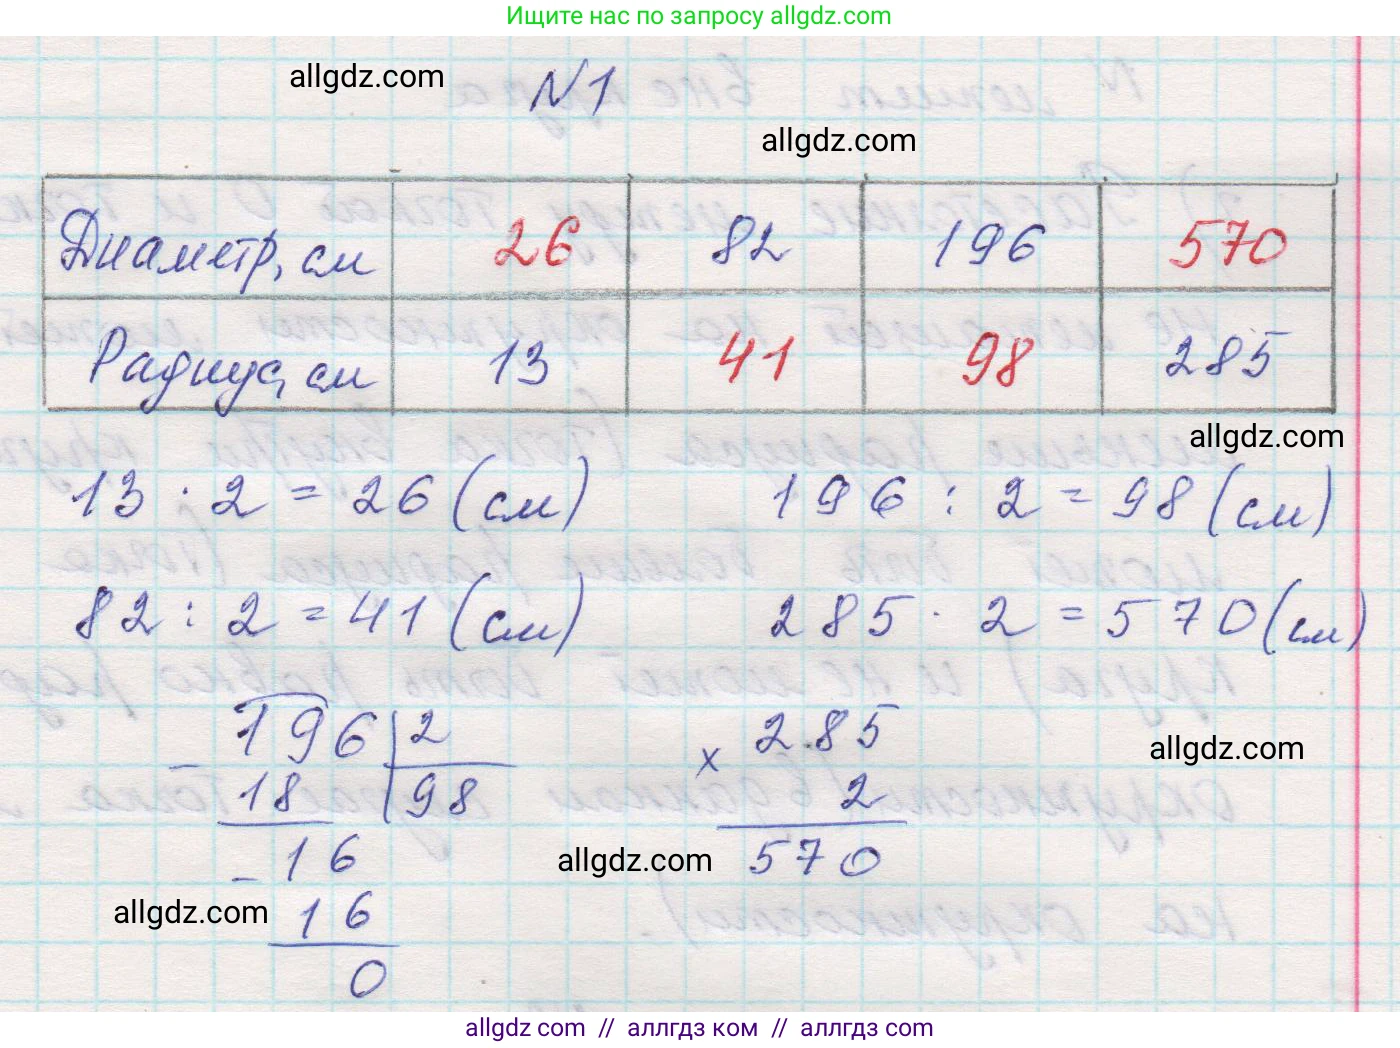 Ищите нас по запросу allgdz.com
allgdz.com
N1
allgdz.com
Диаметр, см 26 82 196 570
Радиус, см 13 41 98 285
allgdz.com
13 · 2 = 26 (см) 196 : 2 = 98 (см)
82 : 2 = 41 (см) 285 · 2 = 570 (см)
196 2 × 285
allgdz.com
- 18 98 2
- 16 570
allgdz.com
16
allgdz.com
0
allgdz.com // аллгдз ком // аллгдз com